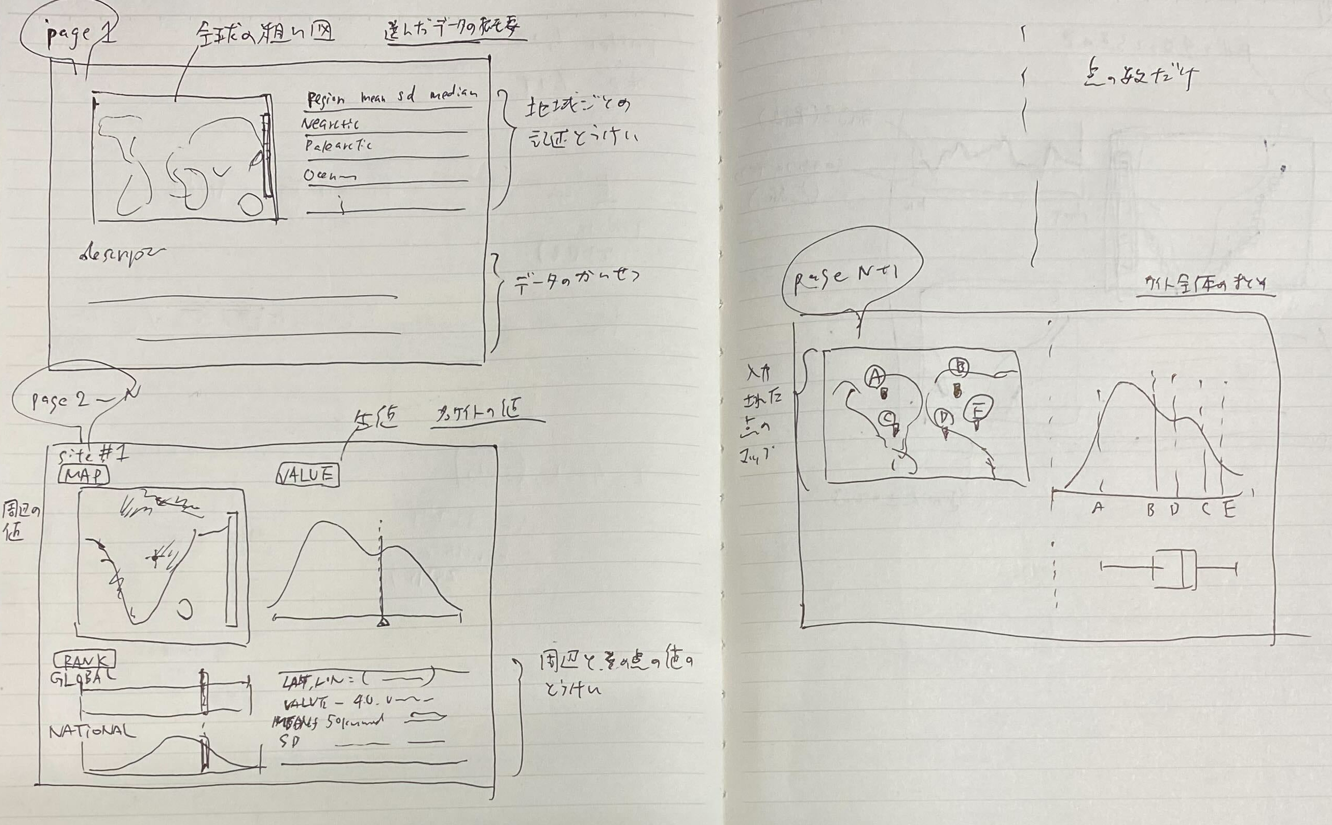 page 1
全球の粗い図
選んだデータの概要
Region mean sd median
Nearctic
Palearctic
Ocean
地域ごとの
記述とうけい
データのかいせつ
page 2 ~ N
生値
各サイトの値
site #1
MAP
VALUE
周辺の
値
RANK
GLOBAL
NATIONAL
LAT, LON = ( )
VALUE
SD
周辺とその点の値の
とうけい
点の数だけ
page N+1
サイト全体のまとめ
入力
された
点の
マップ
A
B
C
D
E
A B D C E